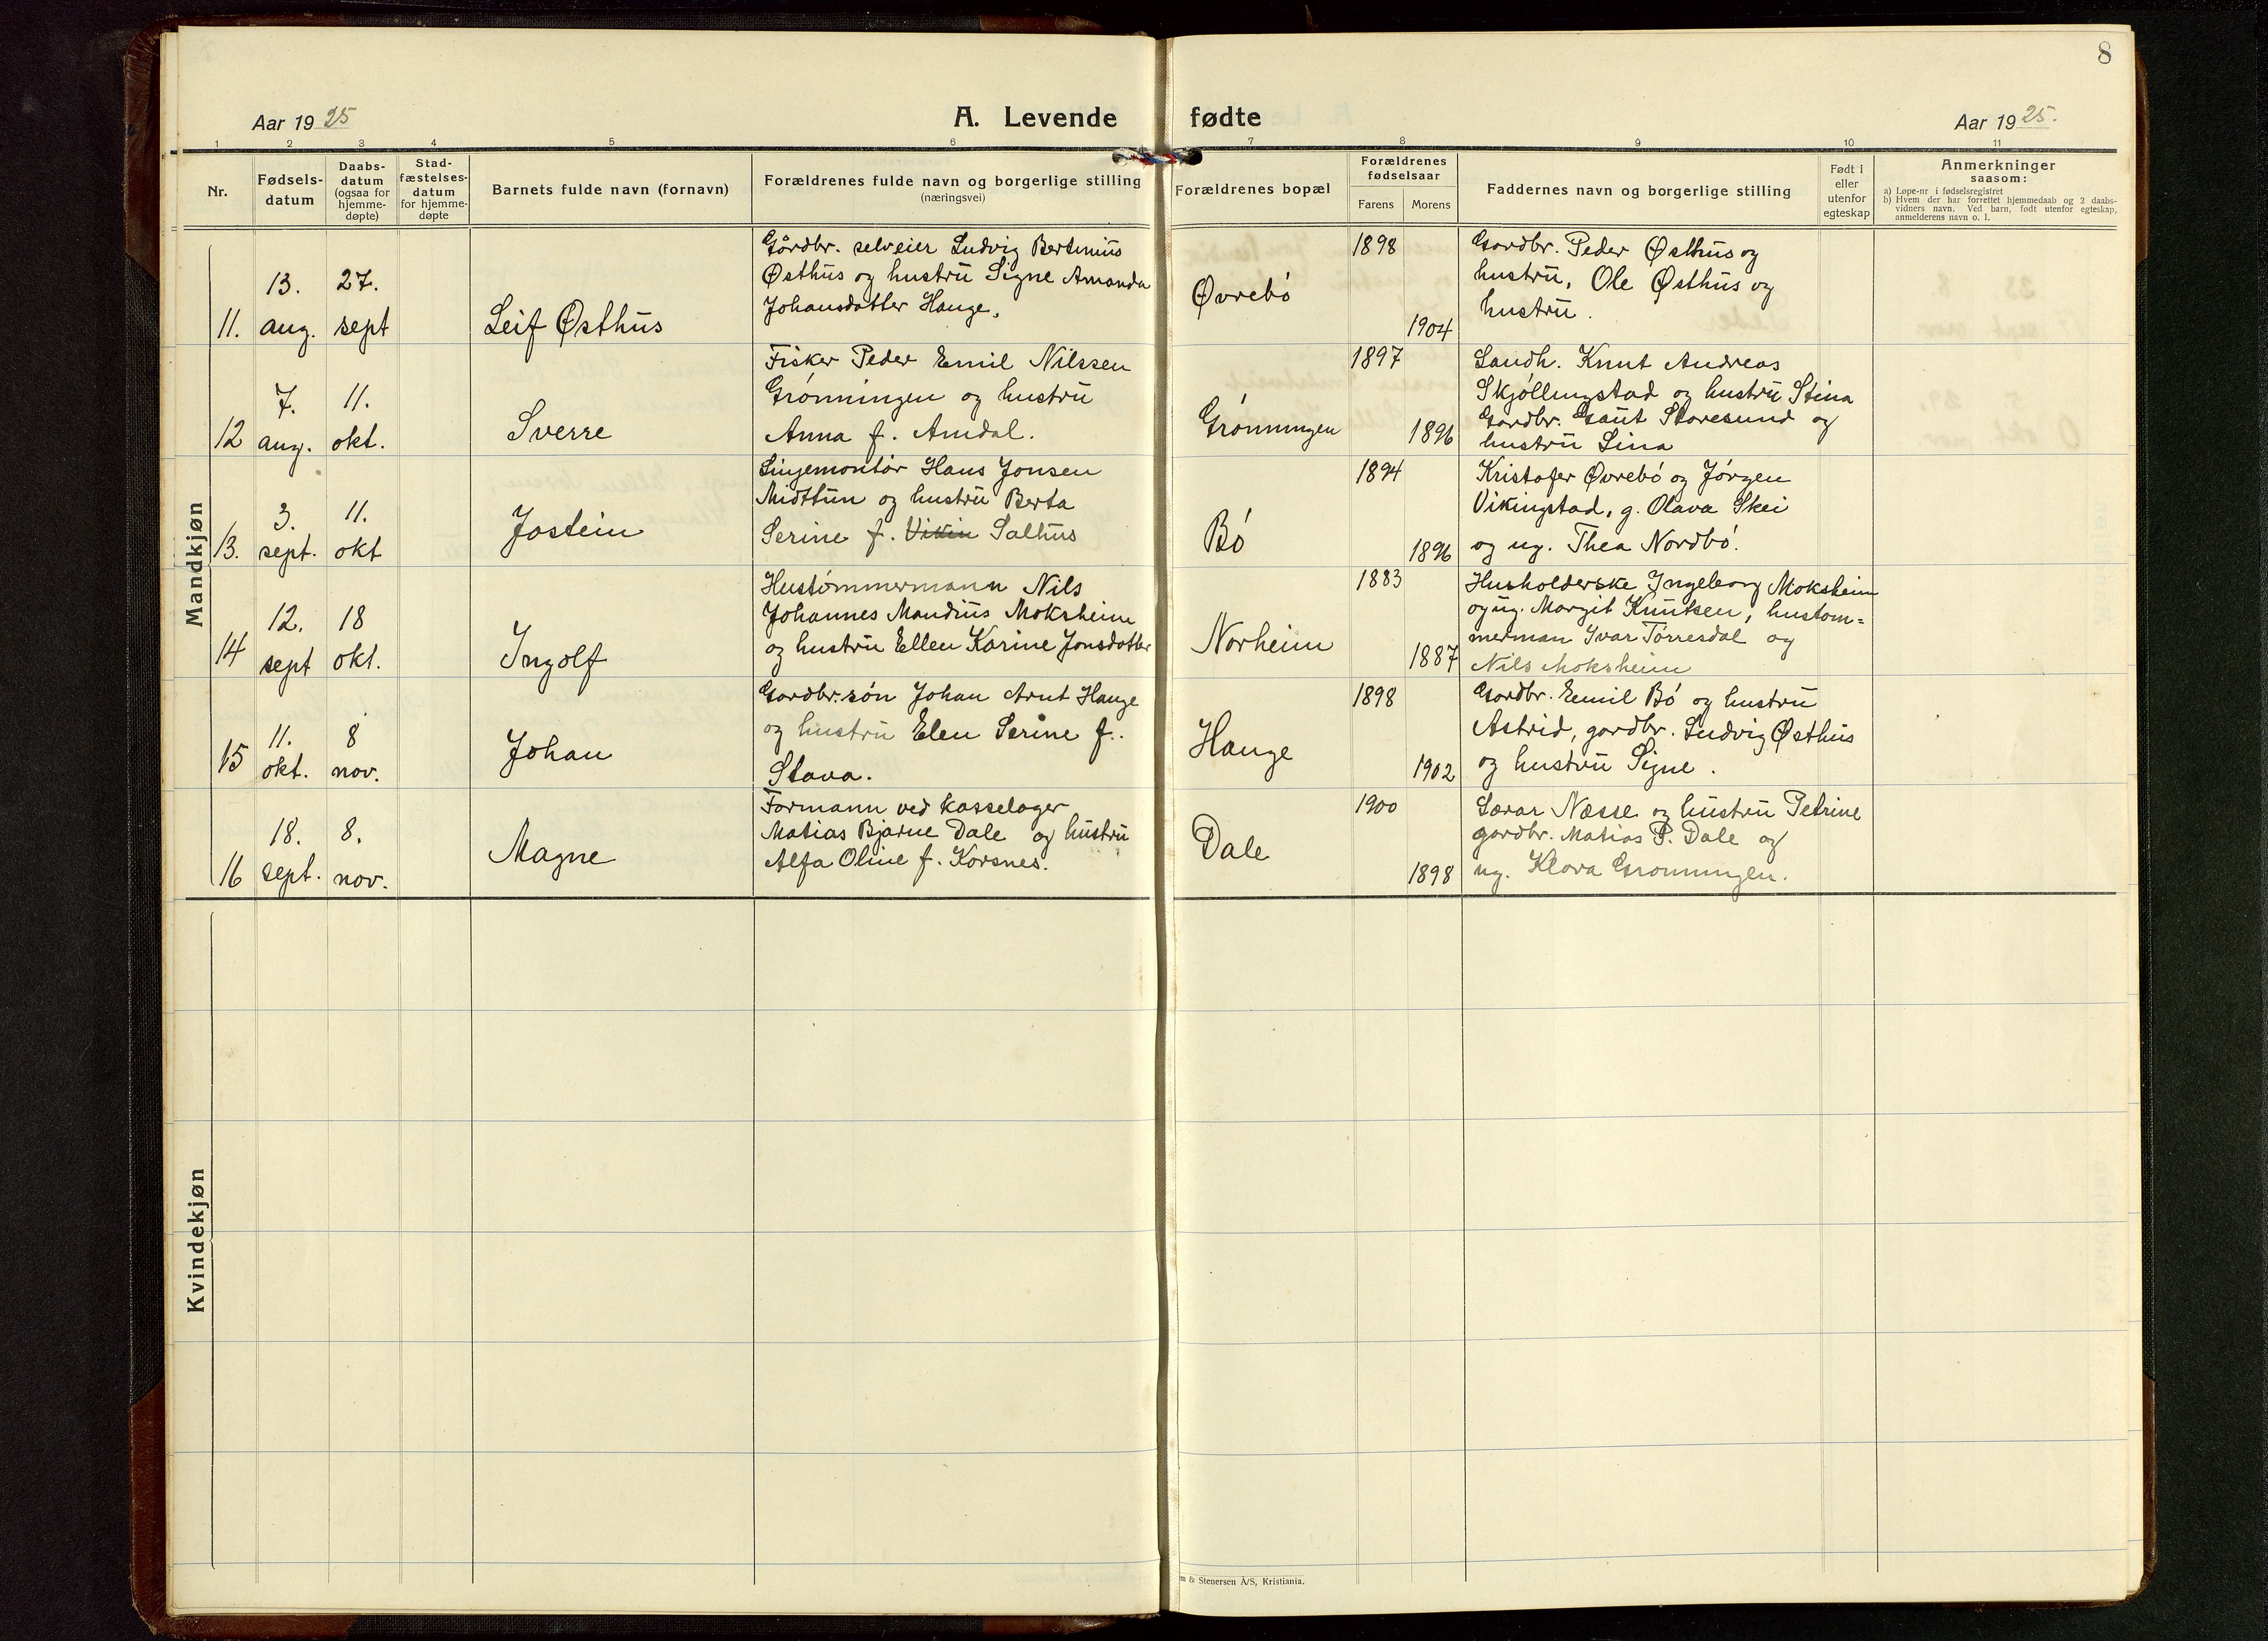 8
Aar 1925
A. Levende fødte
Aar 1925.
1 2 3 4 5 6 7 8 9 10 11
Nr.
Fødsels-
datum
Daabs-
datum
(ogsaa for
hjemme-
døpte)
Stad-
fæstelses-
datum
for hjemme-
døpte
Barnets fulde navn (fornavn)
Forældrenes fulde navn og borgerlige stilling
(næringsvei)
Forældrenes bopæl
Forældrenes
fødselsaar
Farens Morens
Faddernes navn og borgerlige stilling
Født i
eller
utenfor
egteskap
Anmerkninger
saasom:
a) Løpe-nr i fødselsregistret
b) Hvem der har forrettet hjemmedaab og 2 daabs-
vidners navn. Ved barn, født utenfor egteskap,
anmelderens navn o. l.
Mandkjøn
11.
13.
aug.
27.
sept
Leif Østhus
Gårdbr. selveier Ludvig Bertinius
Østhus og hustru Signe Amanda
Johansdatter Hauge.
Øvrebó
1898
1904
Gardbr. Peder Østhus og
hustru, Ole Østhus og
hustru.
12
7.
aug.
11.
okt.
Sverre
Fisker Peder Emil Nilssen
Grónningen og hustru
Anna f. Amdal.
Grónningen
1897
1896
Landh. Knut Andreas
Skjóllingstad og hustru Stina
Gardbr. Gaut Storesund og
hustru Lina
13.
3.
sept.
11.
okt
Jostein
Linjemontór Hans Jonsen
Midttun og hustru Berta
Serine f. Vikin Salhus
Bó
1894
1896
Kristofer Øvrebó og Jórgen
Vikingstad, g. Olava Skei
og ug. Thea Nordbó.
14
12.
sept
18
okt.
Ingolf
Hustómmermann Nils
Johannes Mandius Moksheim
og hustru Ellen Karine Jonsdatter
Norheim
1883
1887
Husholderske Ingeborg Moksheim
og ug. Margit Knutsen, hustom=
merman Ivar Tórresdal og
Nils Moksheim
15
11.
okt.
8
nov.
Johan
Gardbr.són Johan Arnt Hauge
og hustru Elen Serine f.
Stava.
Hauge
1898
1902
Gardbr. Emil Bó og hustru
Astrid, gardbr. Ludvig Østhus
og hustru Signe.
16
18.
sept.
8.
nov.
Magne
Formann ved kasselager
Matias Bjarne Dale og hustru
Alfa Oline f. Korsnes.
Dale
1900
1898
Lærar Næsse og hustru Petrine
gardbr. Matias P. Dale og
ug. Klara Gronningen.
Kvindekjøn
& Stenersen A/S, Kristiania.